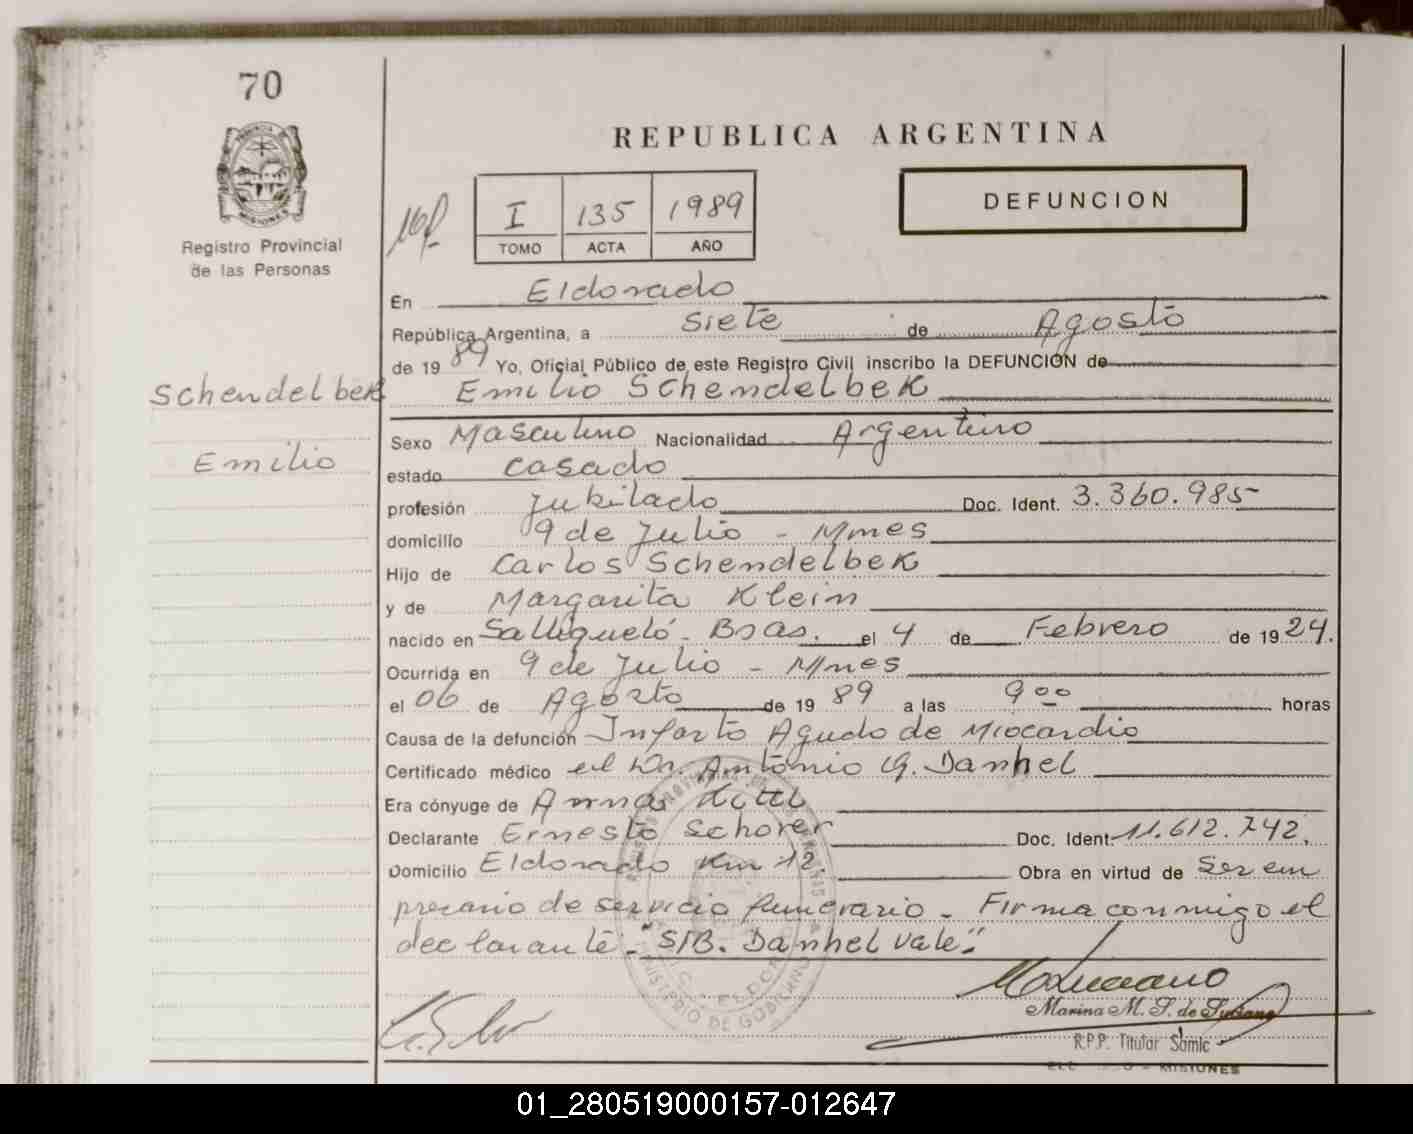 70
REPUBLICA ARGENTINA
DEFUNCION
I 135 1989
TOMO ACTA AÑO
Registro Provincial
de las Personas
En Eldorado
República Argentina, a Siete de Agosto
de 1989 Yo, Oficial Público de este Registro Civil inscribo la DEFUNCION de
Schendelbek Emilio Schendelbek
Sexo Masculino Nacionalidad Argentino
Emilio
estado casado
profesión Jubilado Doc. Ident. 3.360.985
domicilio 9 de Julio - Mnes
Hijo de Carlos Schendelbek
y de Margarita Klein
nacido en Salliqueló - Bsas. el 4 de Febrero de 1924.
Ocurrida en 9 de Julio - Mnes
el 06 de Agosto de 1989 a las 9 00 horas
Causa de la defunción Infarto Agudo de Miocardio
Certificado médico el Dr. Antonio G. Danhel
Era cónyuge de Anna
Declarante Ernesto Schorer Doc. Ident. 11.612.742.
Domicilio Eldorado Km 12 Obra en virtud de Ser em
presario de servicio funerario - Firma conmigo el
declarante - "S/B. Danhel vale".
MINISTERIO DE GOBIERNO
Marina M. S. de
R.P.P. Titular Samic
MISIONES
01_280519000157-012647